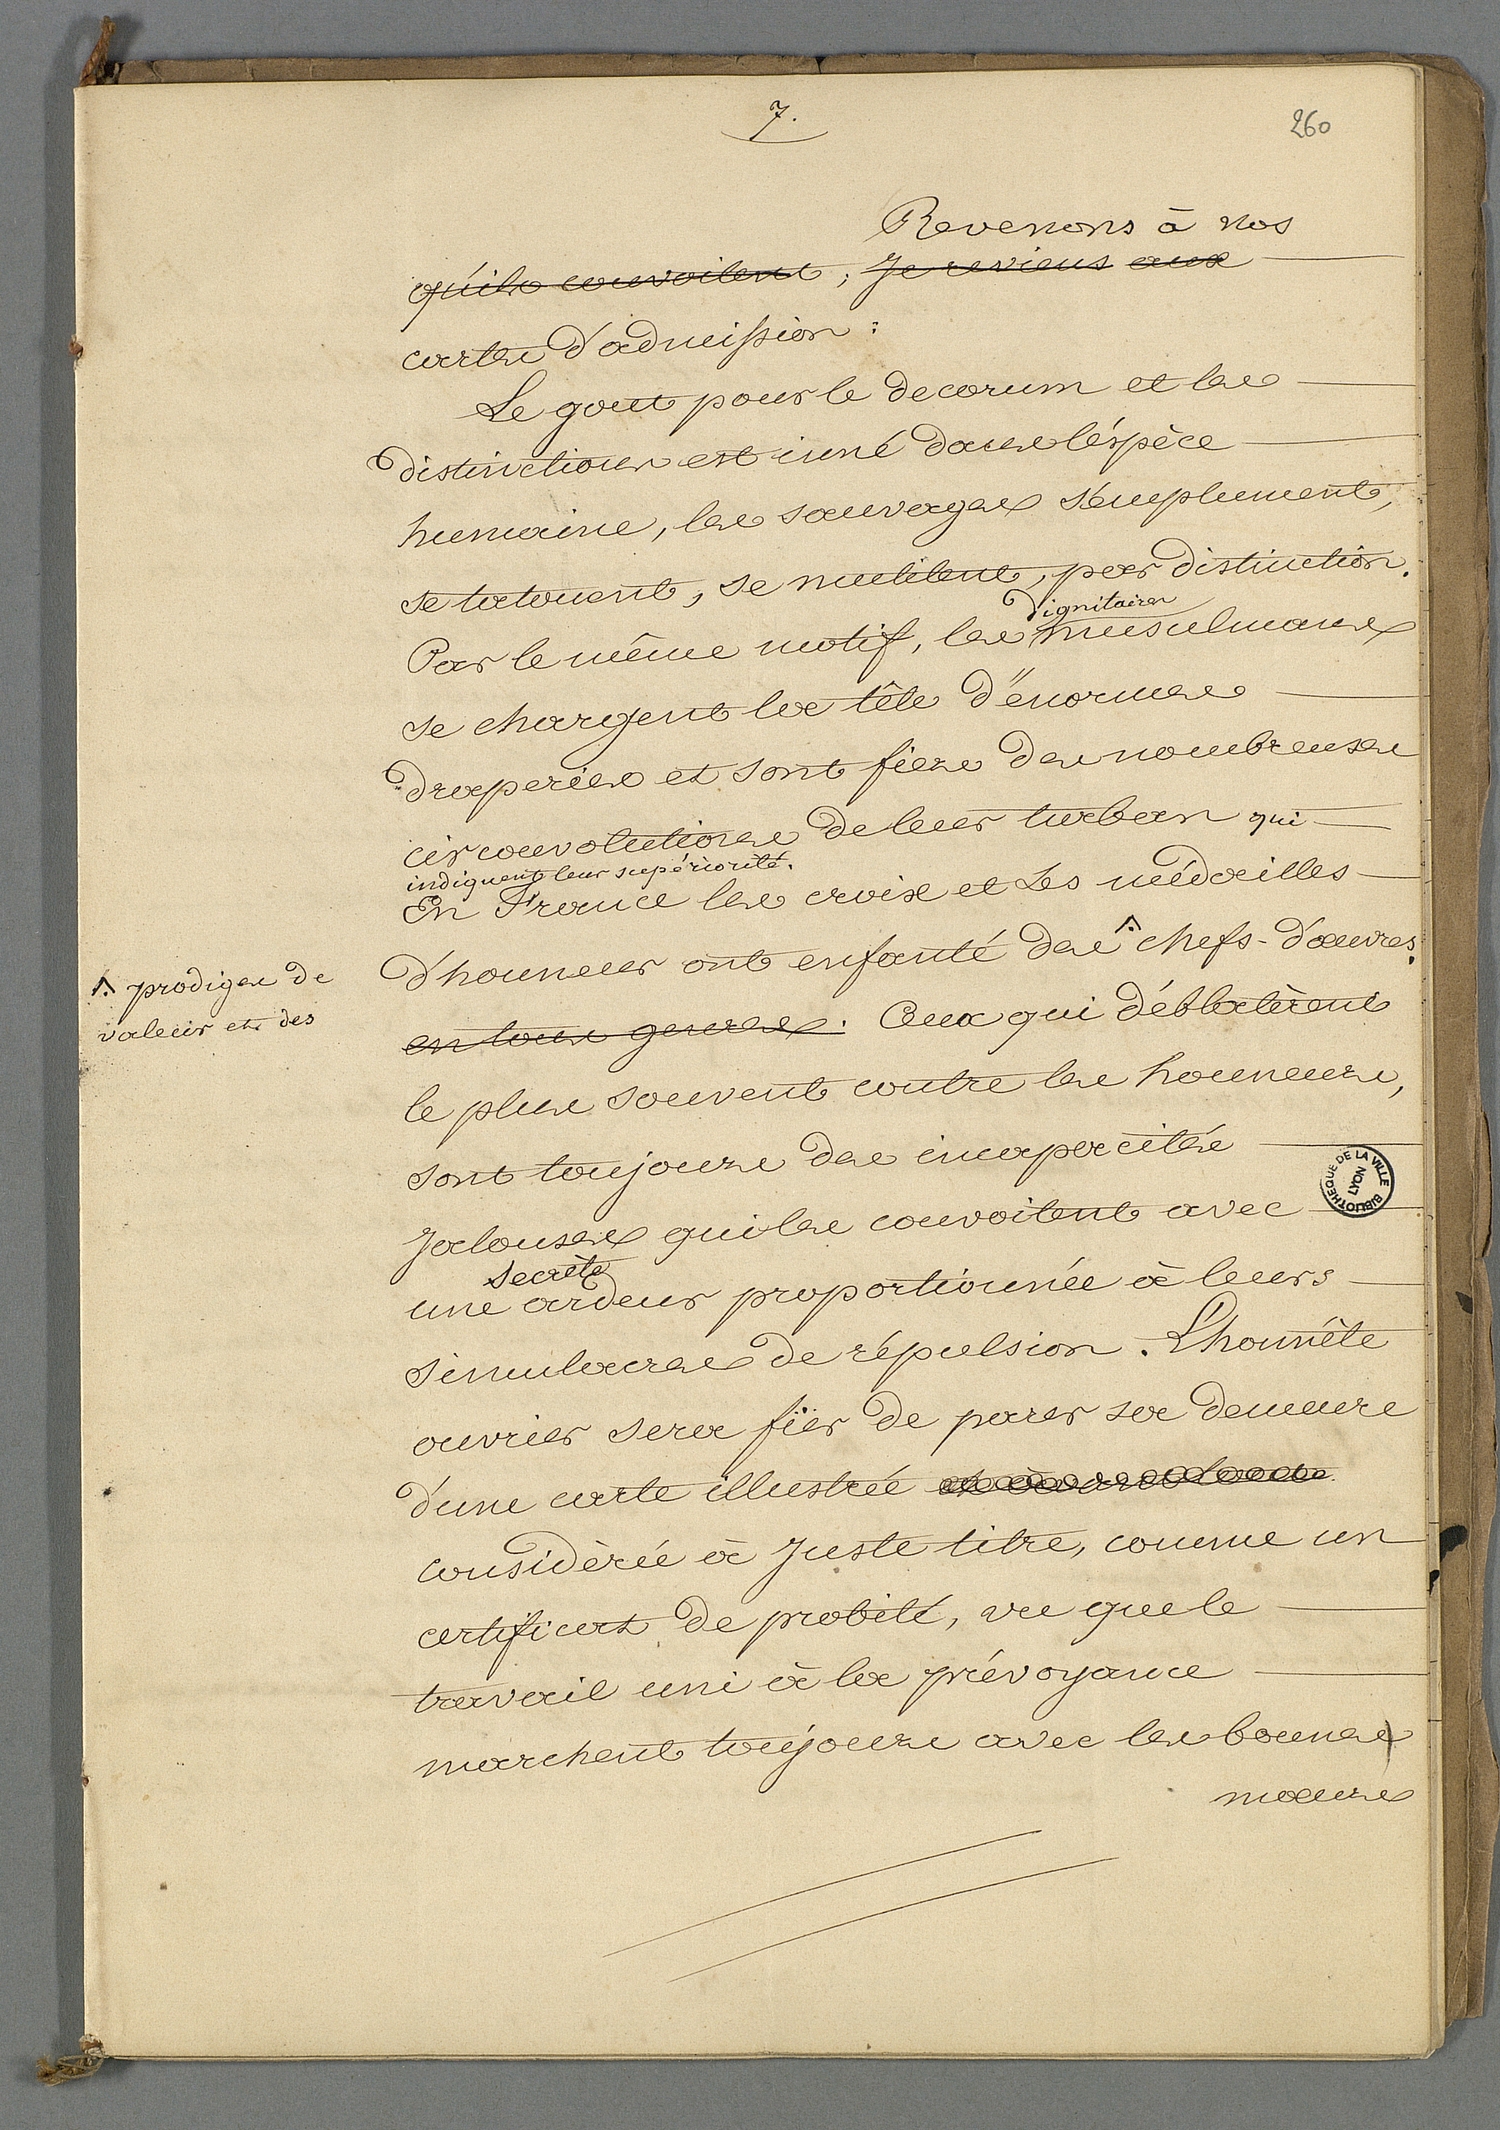 7.
260
Revenons à nos
qu'ils convoitent ; Je reviens aux
cartes d'admission :
Le gout pour le decorum et les
distinctions est inné dans l'éspèce
humaine, les sauvages s'emplument,
se tatouent, se mutilent, par distinction.
dignitaires
Par le même motif, les musulmans
se chargent la tête d'énormes
draperies et sont fiers des nombreuses
circonvolutions de leur turban qui
indiquent leur supériorité.
En France les croix et les médailles
d'honneur ont enfanté des ^ chefs-d'œuvres.
^ prodiges de
valeur et des
en tous genres. Ceux qui déblatèrent
le plus souvent contre les honneurs,
sont toujours des incapacités
Jalouses qui les convoitent avec
secrète
une ardeur proportionnée à leurs
simulacres de répulsion. L'honnête
ouvrier sera fier de parer sa demeure
d'une carte illustrée
considèrée à Juste titre, comme un
certificat de probité, vu que le
travail uni à la prévoyance
marchent toujours avec les bonnes
mœurs
BIBLIOTHEQUE DE LA VILLE
LYON